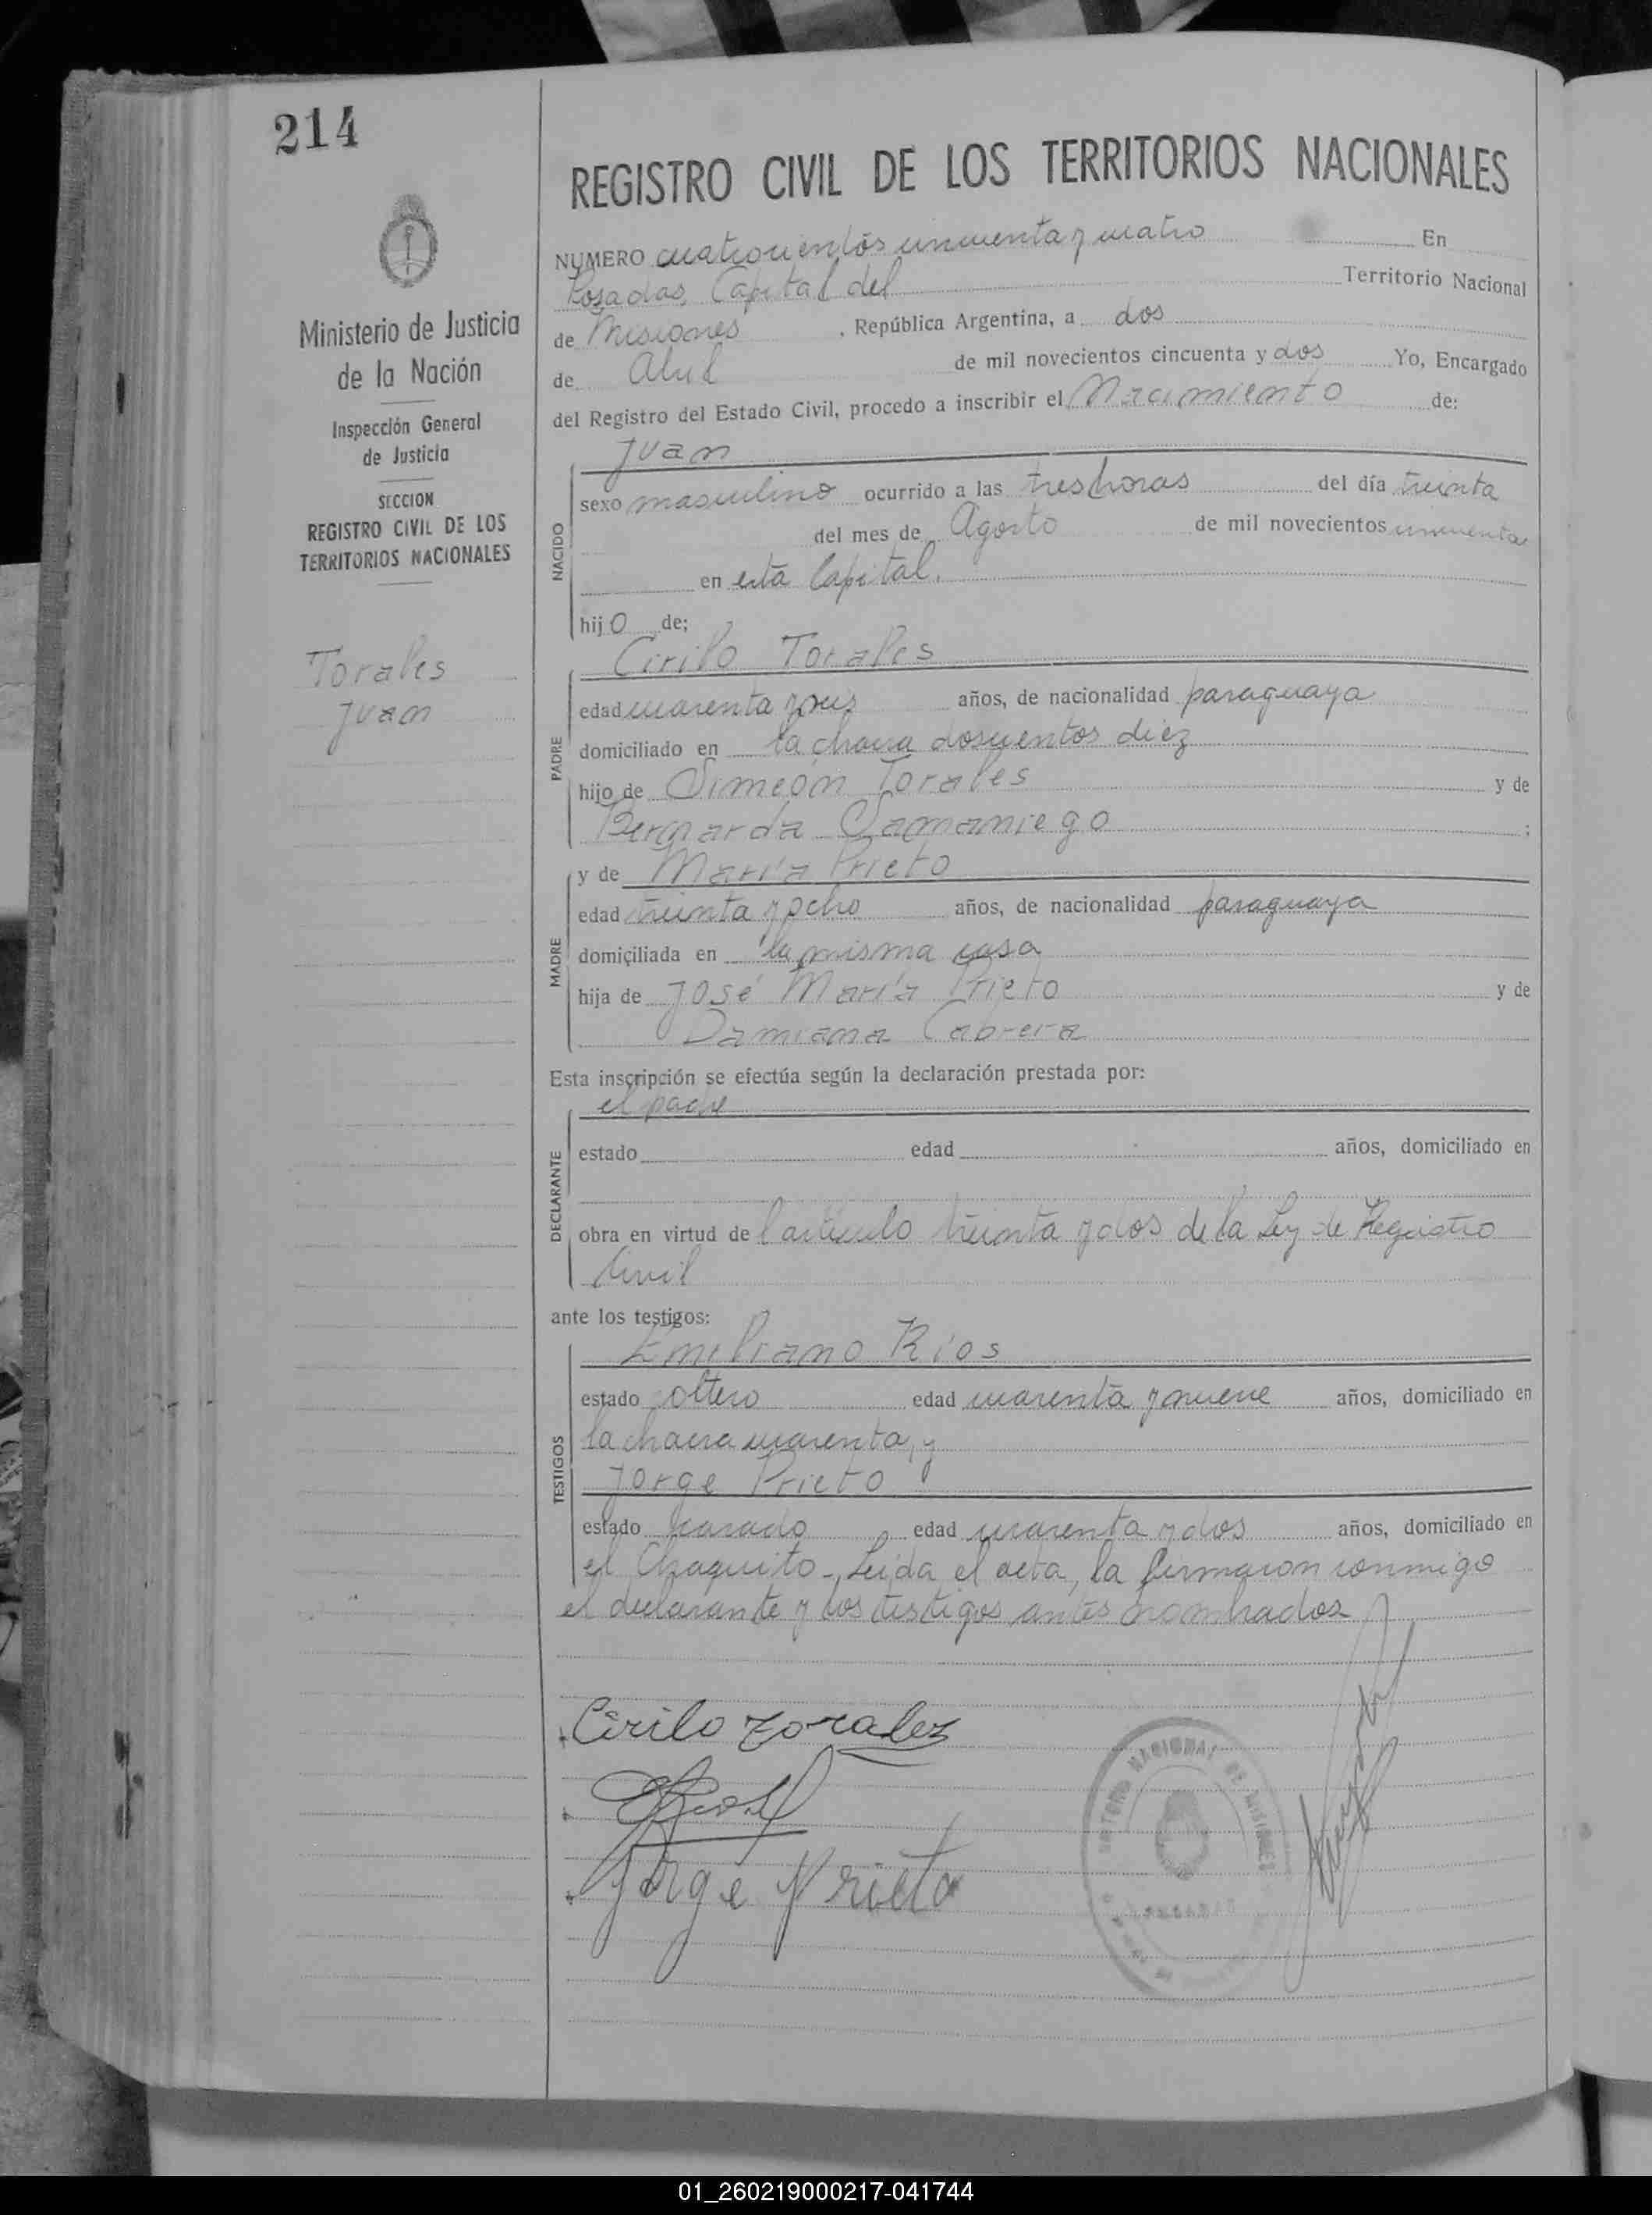 214
REGISTRO CIVIL DE LOS TERRITORIOS NACIONALES
Ministerio de Justicia
de la Nación
Inspección General
de Justicia
SECCION
REGISTRO CIVIL DE LOS
TERRITORIOS NACIONALES
Torales
Juan
NUMERO cuatrocientos cincuenta y cuatro En
Posadas, Capital del Territorio Nacional
de Misiones, República Argentina, a dos
de Abril de mil novecientos cincuenta y dos Yo, Encargado
del Registro del Estado Civil, procedo a inscribir el Nacimiento de:
Juan
NACIDO
sexo masculino ocurrido a las tres horas del día treinta
del mes de Agosto de mil novecientos cincuenta
en esta Capital.
hijo de:
Cirilo Torales
PADRE
edad cuarenta y años, de nacionalidad paraguaya
domiciliado en la chacra doscientos diez
hijo de Simeón Torales y de
Bernarda Samaniego;
y de María Prieto
MADRE
edad treinta y ocho años, de nacionalidad paraguaya
domiciliada en la misma casa
hija de José María Prieto y de
Damiana Cabrera
Esta inscripción se efectúa según la declaración prestada por:
el padre
DECLARANTE
estado edad años, domiciliado en
obra en virtud del artículo treinta y dos de la Ley de Registro
Civil
ante los testigos:
Emiliano Ríos
TESTIGOS
estado soltero edad cuarenta y nueve años, domiciliado en
la chacra cuarenta, y
Jorge Prieto
estado casado edad cuarenta y dos años, domiciliado en
el Chaquito - Leída el acta, la firmaron conmigo
el declarante y los testigos antes nombrados
Cirilo Torales
ERios
Jorge Prieto
01_260219000217-041744